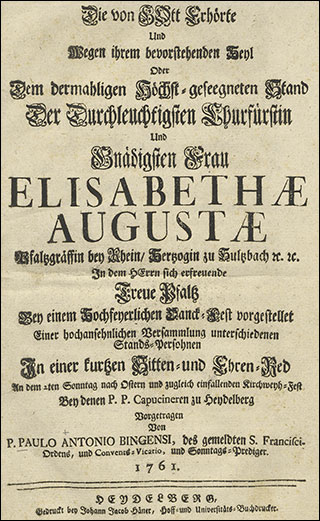 Die von GOtt Erhörte
Und
Wegen ihrem bevorstehenden Heyl
Oder
Dem dermahligen Höchst-geseegneten Stand
Der Durchleuchtigsten Churfürstin
Und
Gnädigsten Frau
ELISABETHÆ
AUGUSTÆ
Pfaltzgräffin bey Rhein/ Hertzogin zu Sultzbach ꝛc. ꝛc.
In dem HErrn sich erfreuende
Treue Pfaltz
Bey einem Hochfeyerlichen Danck-Fest vorgestellet
Einer hochansehnlichen Versammlung unterschiedenen
Stands-Persohnen
In einer kurtzen Sitten- und Ehren-Red
An dem 2ten Sonntag nach Ostern und zugleich einfallenden Kirchweyh-Fest
Bey denen P. P. Capucineren zu Heydelberg
Vorgetragen
Von
P. PAULO ANTONIO BINGENSI, des gemeldten S. Francisci-
Ordens, und Convents-Vicario, und Sonntags-Prediger.
1761.
HEYDELBERG,
Gedruckt bey Johann Jacob Häner, Hoff- und Universitäts-Buchdrucker.